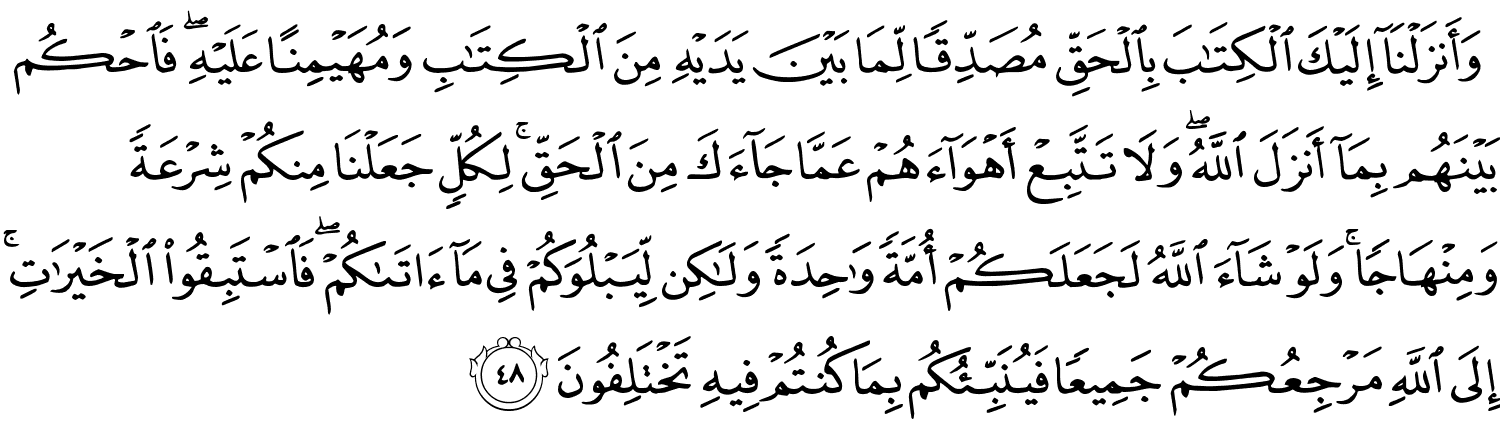 وَأَنزَلْنَآ إِلَيْكَ ٱلْكِتَـٰبَ بِٱلْحَقِّ مُصَدِّقًا لِّمَا بَيْنَ يَدَيْهِ مِنَ ٱلْكِتَـٰبِ وَمُهَيْمِنًا عَلَيْهِ ۖ فَٱحْكُم
بَيْنَهُم بِمَآ أَنزَلَ ٱللَّهُ ۖ وَلَا تَتَّبِعْ أَهْوَآءَهُمْ عَمَّا جَآءَكَ مِنَ ٱلْحَقِّ ۚ لِكُلٍّ جَعَلْنَا مِنكُمْ شِرْعَةً
وَمِنْهَاجًا ۚ وَلَوْ شَآءَ ٱللَّهُ لَجَعَلَكُمْ أُمَّةً وَٰحِدَةً وَلَـٰكِن لِّيَبْلُوَكُمْ فِى مَآ ءَاتَىٰكُمْ ۖ فَٱسْتَبِقُوا۟ ٱلْخَيْرَٰتِ ۚ
إِلَى ٱللَّهِ مَرْجِعُكُمْ جَمِيعًا فَيُنَبِّئُكُم بِمَا كُنتُمْ فِيهِ تَخْتَلِفُونَ ٤٨